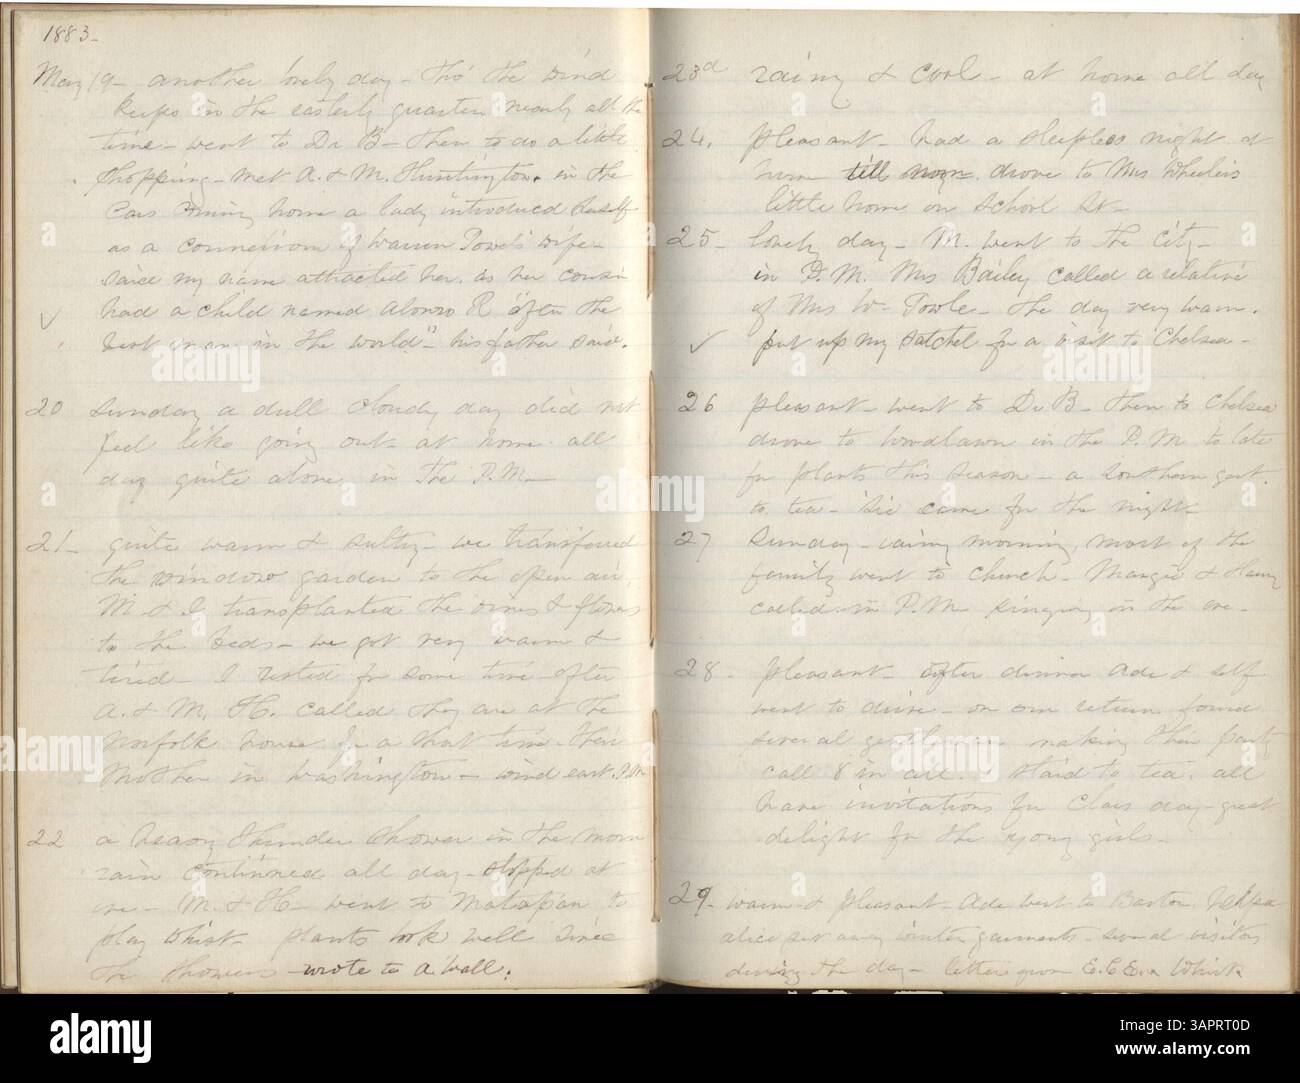 1883-
May 19- another lovely day- Tho' the wind
keeps in the easterly quarter nearly all the
time- went to Dr B- then to do a little
shopping- met A. & M. Huntington. in the
Cars coming home a lady introduced herself
as a connection of Warren Towel's wife-
said my name attracted her. as her cousin
had a child named Alonzo R after the
best man in the world" his father said.
20 Sunday a dull cloudy day did not
feel like going out- at home all
day quite alone in the P.M-
21- quite warm & sultry- we transferred
the window garden to the open air.
M & I transplanted the & flowers
to the beds- we got very warm &
tired- I rested for some time- after
A. & M. H. called they are at the
Norfolk house for a short time- their
Mother in Washington- wind east. P.M
22 a heavy thunder shower in the morn
rain continued all day- stopped at
eve- M. & H- went to Matapan to
play whist- plants look well since
the showers- wrote to A Wall.
23d rainy & cool- at home all day
24. pleasant- had a sleepless night at
home till noon. drove to Mrs Wheelers
little home on School St-
25- lovely day- M. went to the city-
in P.M. Mrs Bailey called a relative
of Mrs W- Towle- the day very warm.
put up my satchel for a visit to Chelsea-
26 pleasant- went to Dr B- then to Chelsea
drove to Woodlawn in the P.M. to late
for plants this season- a southern gent.
to tea- Sis came for the night-
27 Sunday- rainy morning, most of the
family went to church- Margie & Harry
called in P.M. singing in the eve-
28- pleasant- after dinner Ade & self
went to drive- on our return found
several gentlemen making their party
call 8 in all. staid to tea. all
have invitations for Class day- great
delight for the young girls-
29- warm & pleasant- Ade went to Boston
Alice set away winter garments- several visitors
during the day- letter from E.C.E. a Whist
alamy
Image ID: 3APRT0D
www.alamy.com